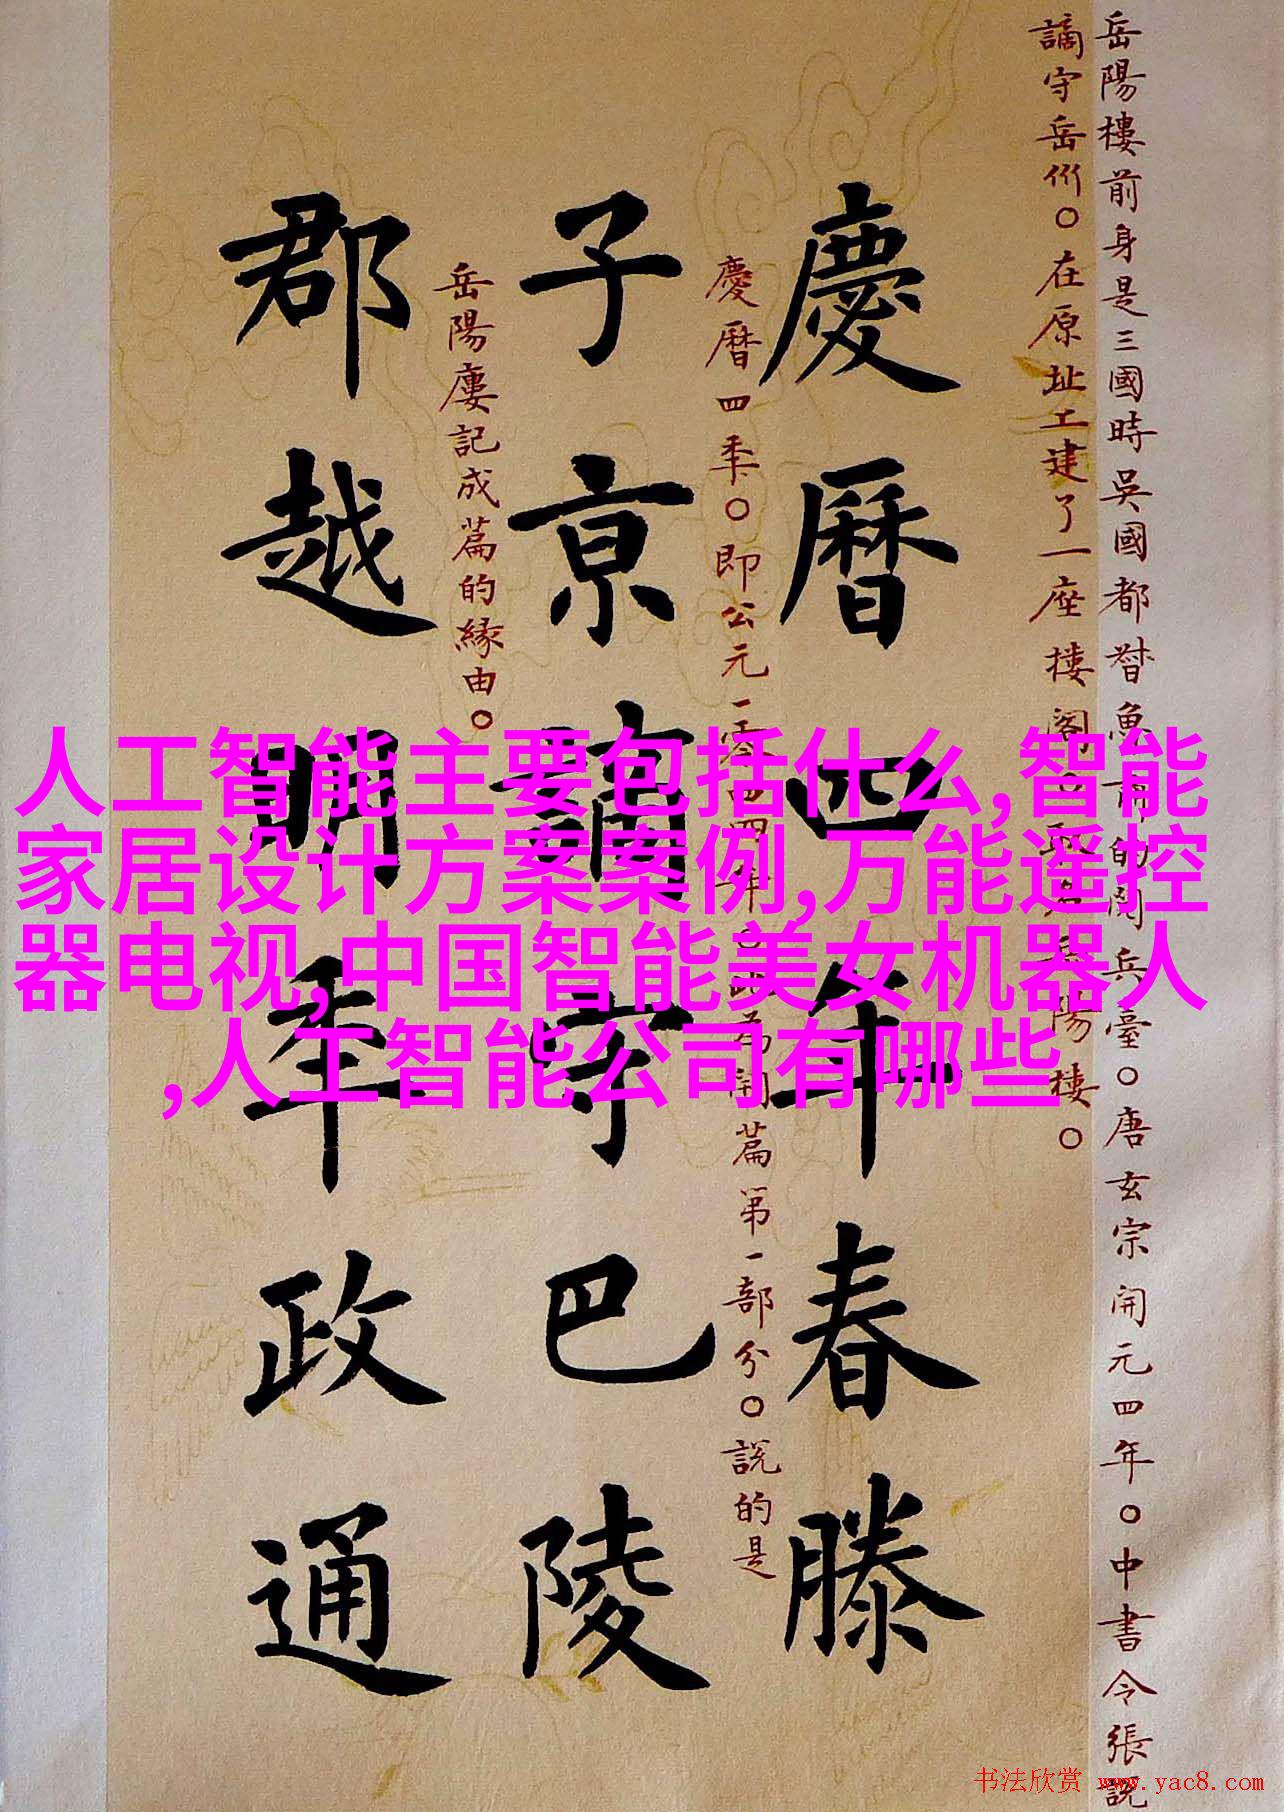 岳陽樓前身是三國時吳國都督魯肅的閱兵臺○唐玄宗開元四年○中書令張説
謫守岳州○在原址工建了一座樓閣○取名岳陽樓○
慶曆四年春滕
慶曆四年○即公元一零四四年○此為開篇第一部分○説的是
子京謫守巴陵
岳陽廔記成篇的緣由○
郡越明年政通
人工智能主要包括什么,智能
家居设计方案案例,万能遥控
器电视,中国智能美女机器人
,人工智能公司有哪些
书法欣赏 www.yac8.com